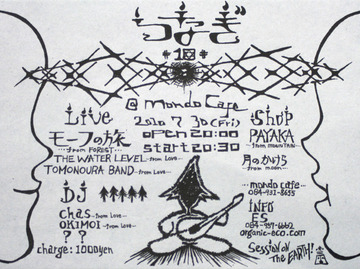 うなぎ
+10+
@ Mondo Cafe
2010 7 30 (Fri)
OPEN 20:00
Start 20:30
Live
モーフの旅
...from FOREST...
THE WATER LEVEL -from Love-
TOMONOURA BAND -from Love-
DJ
chas -from Love-
OKIMOI -from Love-
? ?
charge: 1000yen
Shop
PAYAKA
-from MOUNTAIN-
月のかけら
-from moon-
...mondo cafe...
084-931-8655
INFO
ES
organic-eco.com
Session on
The EARTH!